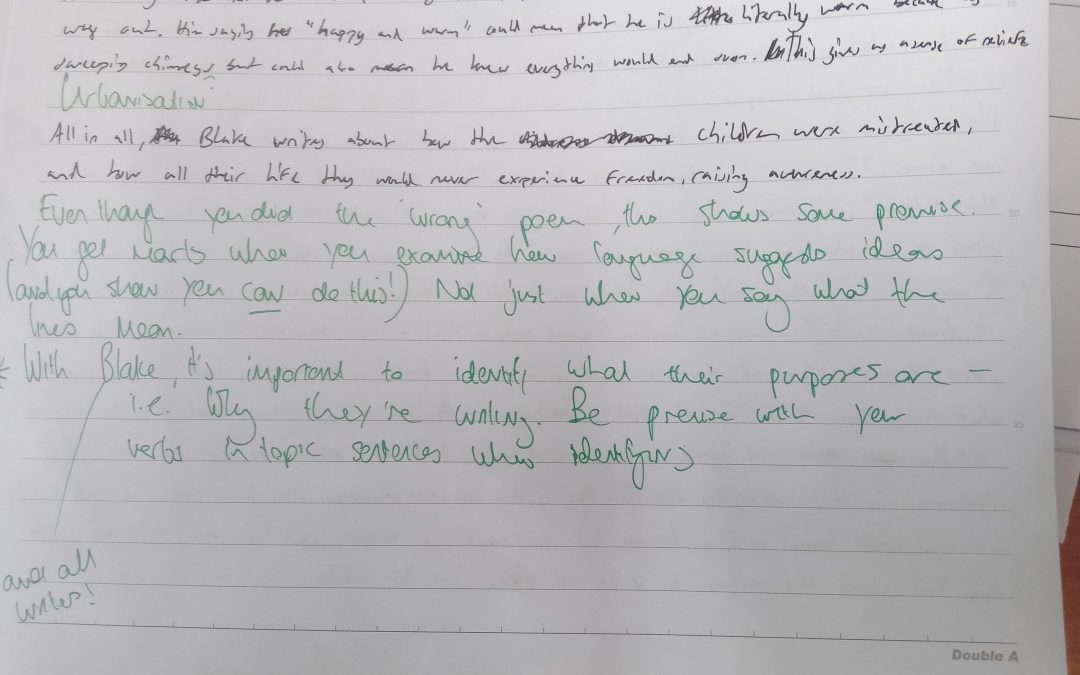 way out. Him saying he's "happy and warm" could mean that he is literally warm because
sweeping chimneys but could also mean he knew everything would end soon. This gives us a sense of relief
Urbanisation
All in all, Blake writes about how the children were mistreated,
and how all their life they would never experience freedom, raising awareness.
Even though you did the 'wrong' poem, this shows some promise.
You get marks when you examine how language suggests ideas
(and you show you can do this!) Not just when you say what the
lines mean.
* With Blake, it's important to identify what their purposes are –
i.e. Why they're writing. Be precise with your
verbs in topic sentences when identifying
and all
writers!
15
20
25
Double A